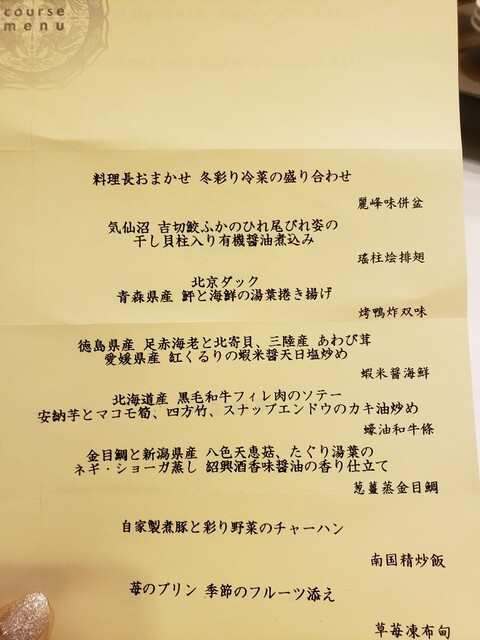 course
menu
料理長おまかせ 冬彩り冷菜の盛り合わせ
麗峰味併盆
気仙沼 吉切鮫ふかのひれ尾びれ姿の
干し貝柱入り有機醤油煮込み
瑤柱烩排翅
北京ダック
青森県産 鮃と海鮮の湯葉捲き揚げ
烤鴨炸双味
徳島県産 足赤海老と北寄貝、三陸産 あわび茸
愛媛県産 紅くるりの蝦米醤天日塩炒め
蝦米醤海鮮
北海道産 黒毛和牛フィレ肉のソテー
安納芋とマコモ筍、四方竹、スナップエンドウのカキ油炒め
蠔油和牛條
金目鯛と新潟県産 八色天恵菇、たぐり湯葉の
ネギ・ショーガ蒸し 紹興酒香味醤油の香り仕立て
葱薑蒸金目鯛
自家製煮豚と彩り野菜のチャーハン
南国精炒飯
苺のプリン 季節のフルーツ添え
草苺凍布甸